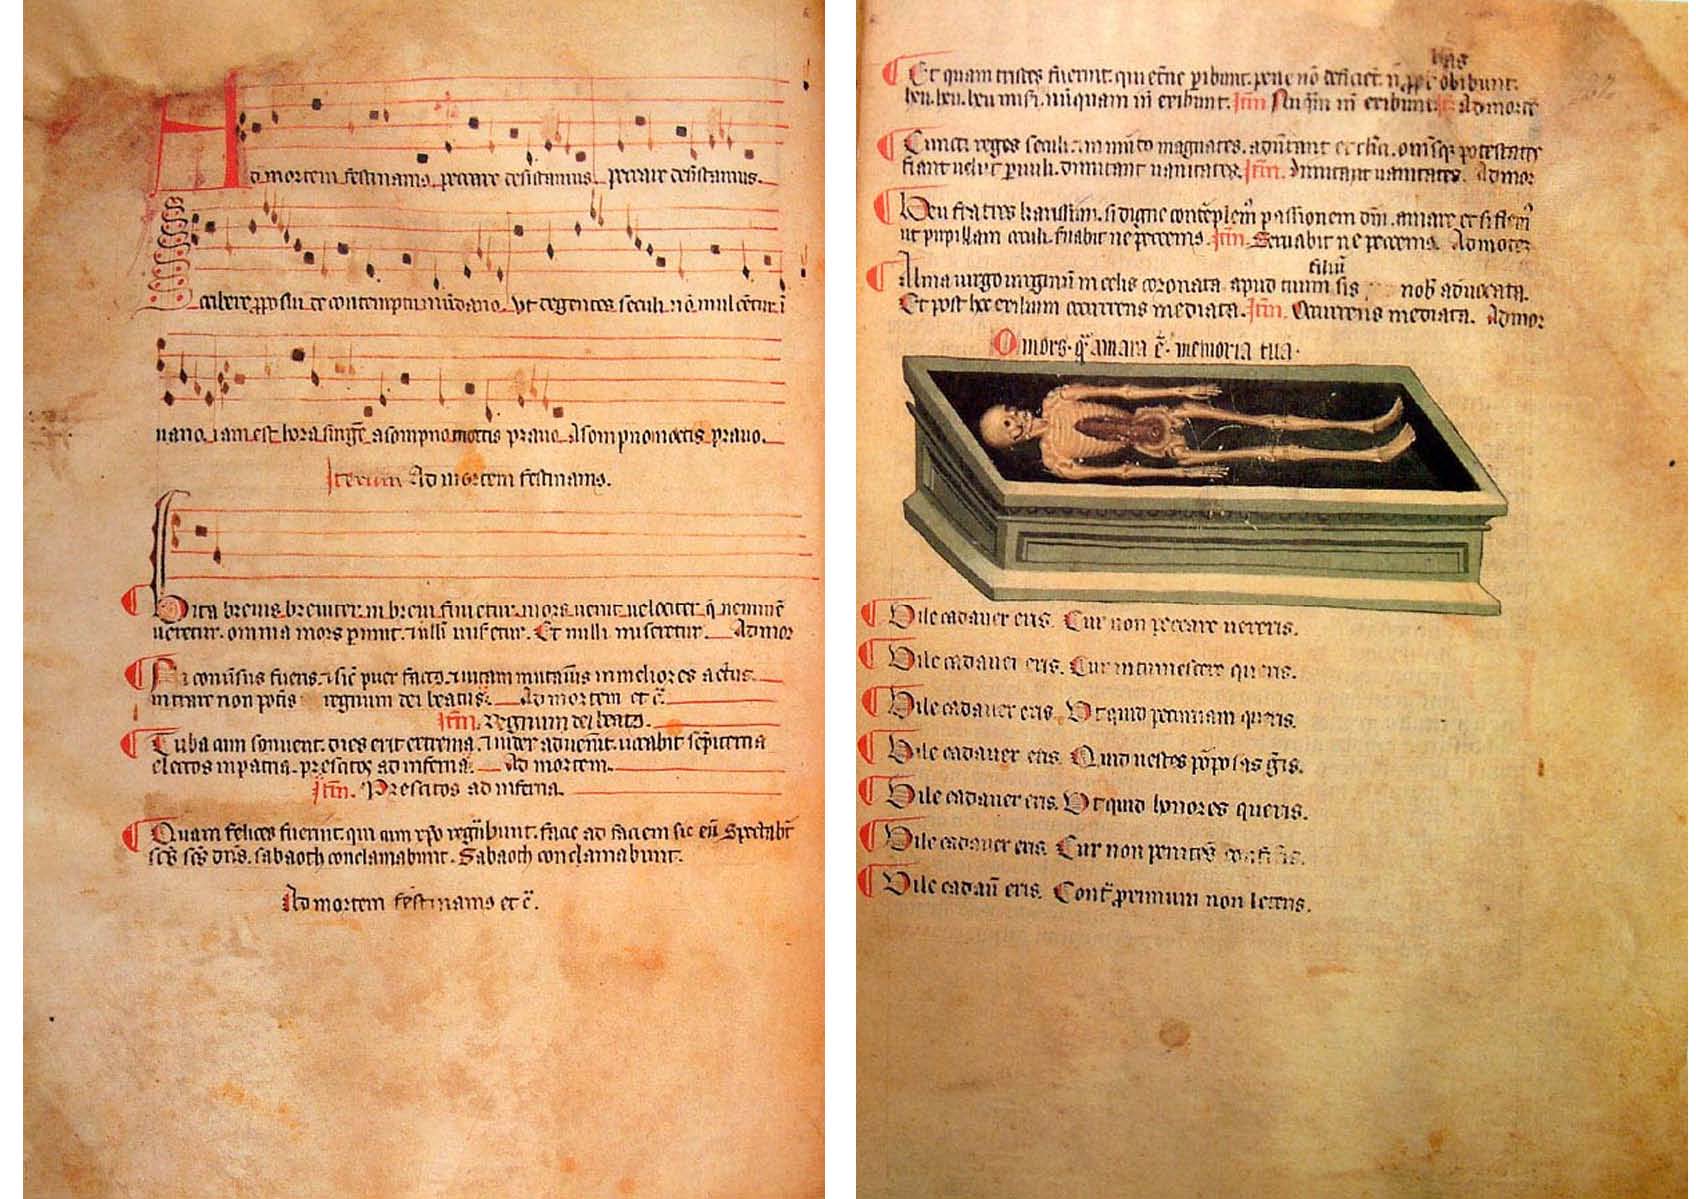 Ad mortem festinamus peccare desistamus peccare desistamus.
Scribere pposui de contemptu mūdano Ut degentes seculi nō mulcētur ī
uano. iam est hora surgē̄ a sompno mortis prauo. A sompno mortis prauo.
Iterum Ad mortem festinamus.
Vita breuis breuiter in breui finietur. mors uenit uelociter q̄ neminē
ueretur. omnia mors perimit. ⁊ nulli miseretur. Et nulli miseretur. Ad mor
Ni conuersus fueris. ⁊ sic̄ puer factus. ⁊ uitam mutaueris in meliores actus.
intrare non poteris regnum dei beatus. Ad mortem et c̄.
Itm̄. Regnum dei beatus.
Tuba cum sonuerit. dies erit extrema. ⁊ iudex aduenerit. uocabit sempiterna
electos in patria. prescitos ad inferna. Ad mortem.
Itm̄. Prescitos ad inferna.
Quam felices fuerint. qui cum xp̄o regnabunt. facie ad faciem sic eū spectabūt
sc̄s sc̄s dn̄s. sabaoth conclamabunt. Sabaoth conclamabunt.
Ad mortem festinamus et c̄.
Et quam tristes fuerint. qui et̄ne peribunt. pene nō deficiēt. n̄ propter has obibunt.
heu. heu. heu miseri. nūquam in̄ exibunt. Itm̄ Nūq̄m in̄ exibunt. Ad morte
Cuncti reges seculi. ⁊ in mūdo magnates. aduertant et cleri. omīsq̄ potestates
fiant uelut paruuli. dimitant uanitates. Itm̄. Dimitant uanitates. Ad mor
Heu fratres karissimi. si digne contēplemur passionem dn̄i. amare et si flemus
ut pupillam oculi. seruabit ne peccemus. Itm̄. Seruabit ne peccemus. Ad morte
Alma uirgo uirginū in celis coronata. apud tuum filiū sis nobis aduocata.
Et post hoc exilium occurrens mediata. Itm̄. Occurrens mediata. Ad mor
O mors. q̄ amara ē. memoria tua.
Vile cadauer eris. Cur non peccare uereris.
Vile cadauer eris. Cur intumescere queris.
Vile cadauer eris. Ut quid peccuniam queris.
Vile cadauer eris. Quid uestes pomposas geris.
Vile cadauer eris. Ut quid honores queris.
Vile cadauer eris. Cur non penitens confiteris.
Vile cadau̅ eris. Contra proximum non leteris.